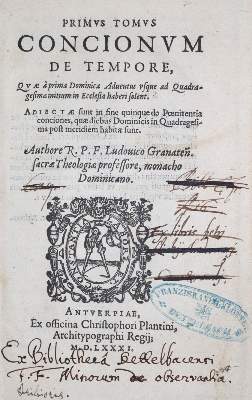 PRIMVS TOMVS
CONCIONVM
DE TEMPORE,
QVÆ à prima Dominica Aduentus vsque ad Quadra-
gesimæ initium in Ecclesia haberi solent.
ADIECTÆ sunt in fine quinque de Pœnitentia
conciones, quæ diebus Dominicis in Quadragesi-
ma post meridiem habitæ sunt.
Authore R. P. F. Ludouico Granateñ.
sacræ Theologiæ professore, monacho
Dominicano.
ANTVERPIAE,
Ex officina Christophori Plantini,
Architypographi Regij.
M.D.LXXXI.
Ex Bibliotheca
F.F. Minorum de observantia